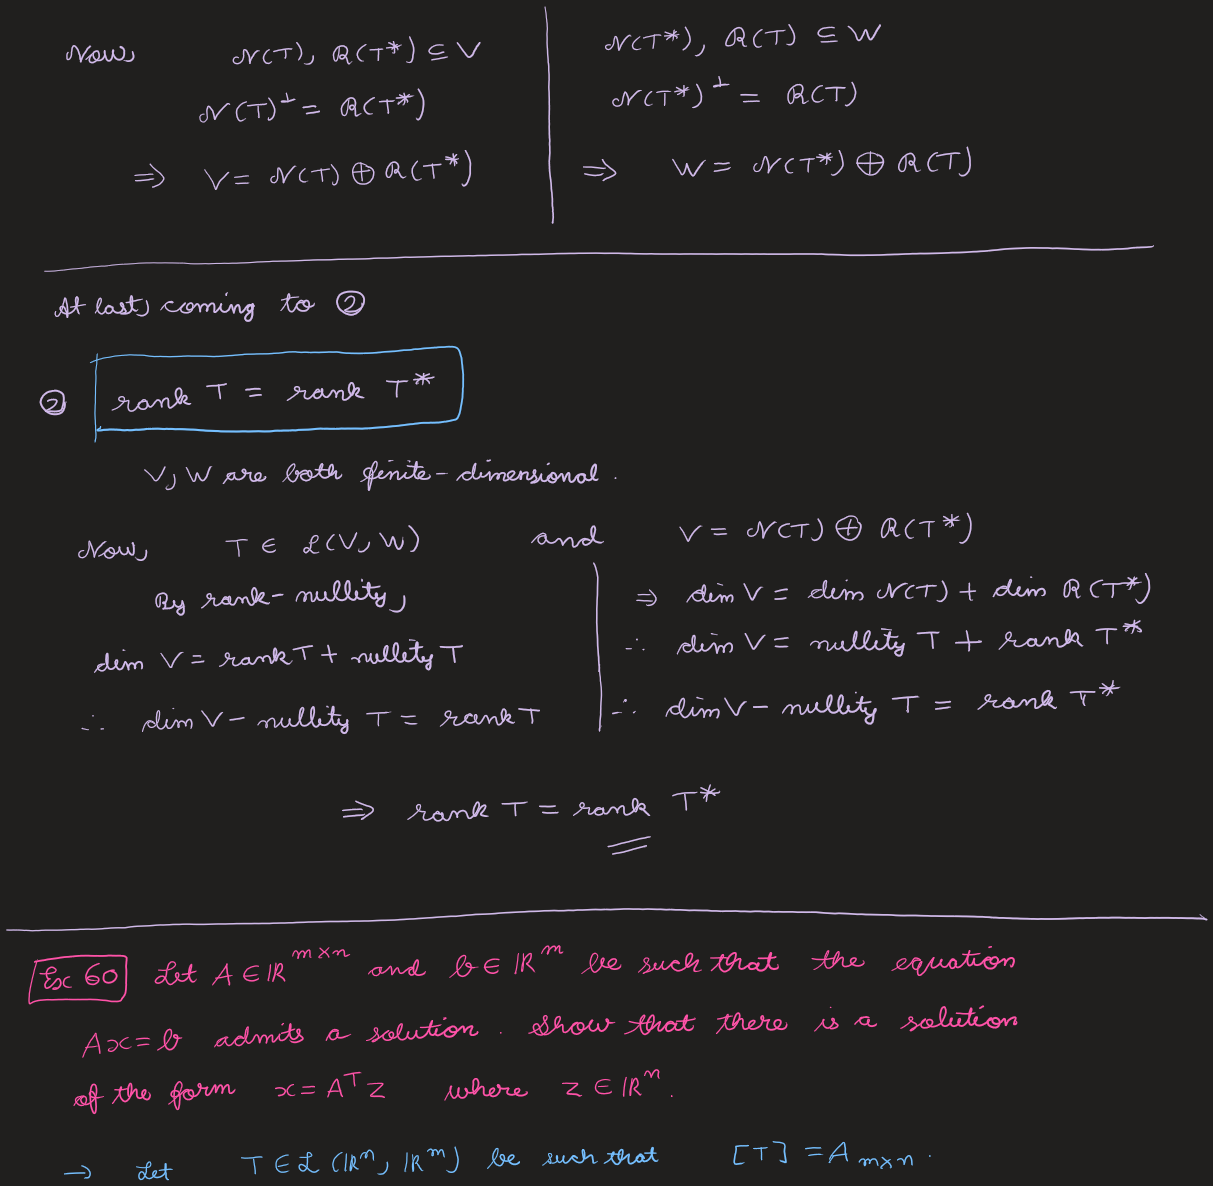 Now, N(T), R(T*) ⊆ V
N(T)^⊥ = R(T*)
⇒ V = N(T) ⊕ R(T*)
N(T*), R(T) ⊆ W
N(T*)^⊥ = R(T)
⇒ W = N(T*) ⊕ R(T)
At last, coming to ②
② rank T = rank T*
V, W are both finite-dimensional.
Now, T ∈ L(V, W) and V = N(T) ⊕ R(T*)
By rank-nullity,
dim V = rank T + nullity T
∴ dim V - nullity T = rank T
⇒ dim V = dim N(T) + dim R(T*)
∴ dim V = nullity T + rank T*
∴ dim V - nullity T = rank T*
⇒ rank T = rank T*
Ex 60 Let A ∈ ℝ^{m×n} and b ∈ ℝ^m be such that the equation
Ax = b admits a solution. Show that there is a solution
of the form x = A^T z where z ∈ ℝ^n.
→ Let T ∈ L(ℝ^n, ℝ^m) be such that [T] = A_{m×n}.